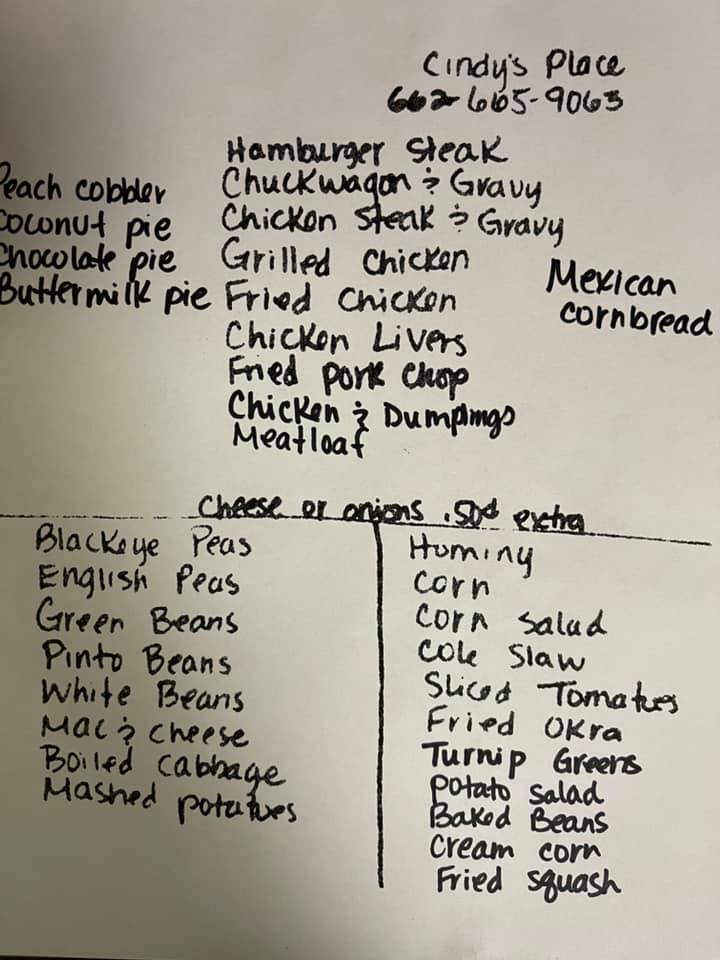 Cindy's Place
662-665-9063
Hamburger Steak
Chuckwagon & Gravy
Chicken Steak & Gravy
Grilled Chicken
Fried Chicken
Chicken Livers
Fried Pork Chop
Chicken & Dumplings
Meatloaf
Peach cobbler
Coconut pie
Chocolate pie
Buttermilk pie
Mexican
cornbread
Cheese or onions .50¢ extra
Blackeye Peas
English Peas
Green Beans
Pinto Beans
White Beans
Mac & cheese
Boiled cabbage
Mashed potatoes
Hominy
Corn
Corn Salad
Cole Slaw
Sliced Tomatoes
Fried Okra
Turnip Greens
Potato Salad
Baked Beans
Cream corn
Fried squash